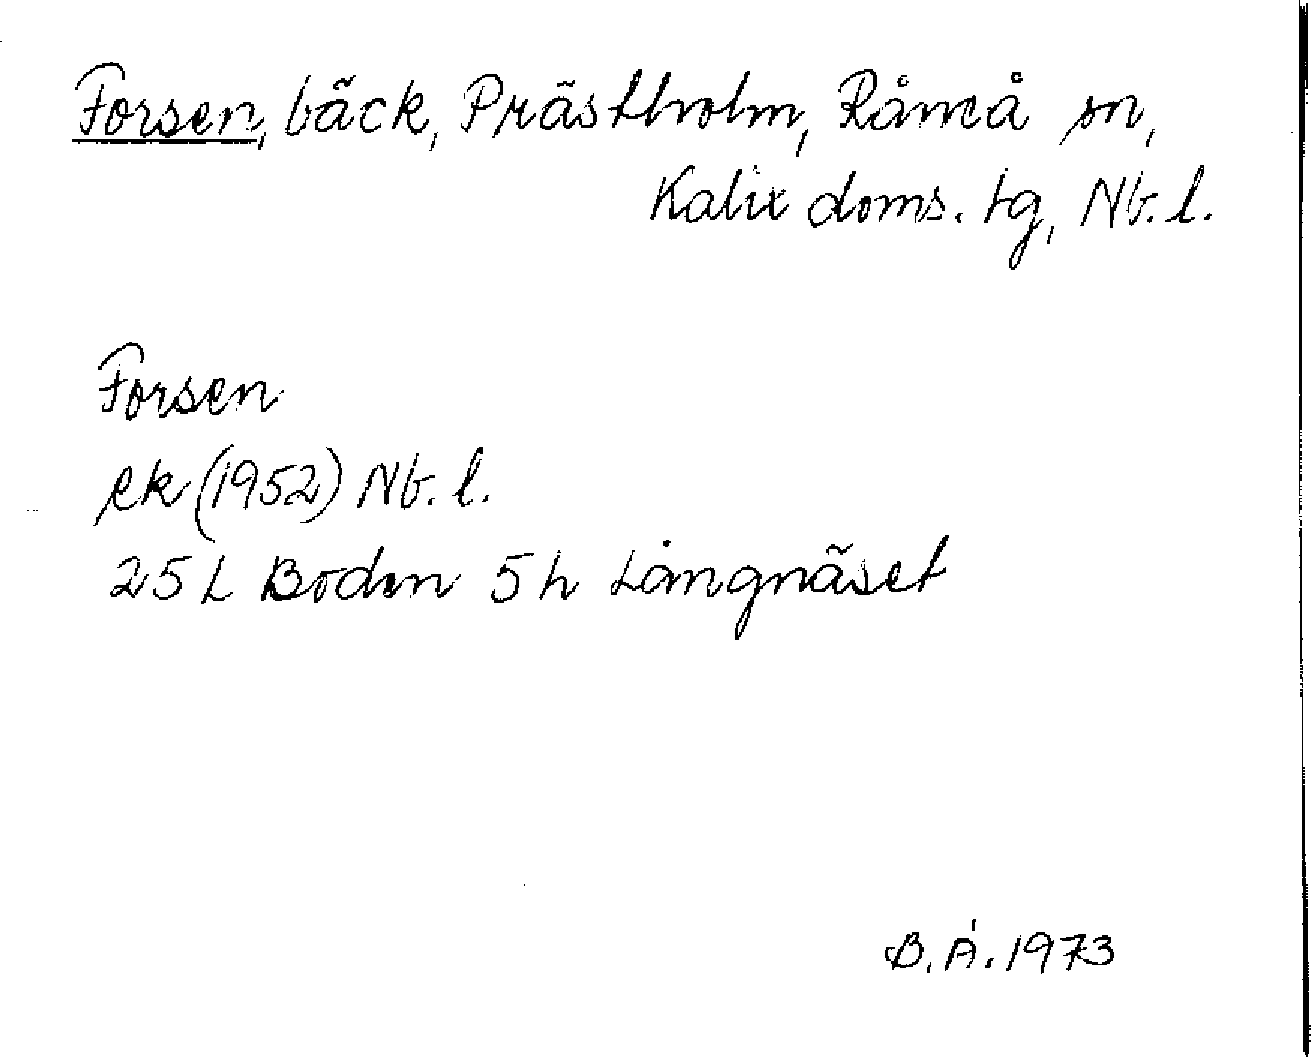 Forsen, bäck, Prästholm, Råneå sn,
Kalix doms. tg, Nb. l.
Forsen
ek (1952) Nb. l.
25 L Boden 5 h Långnäset
B. Å. 1973